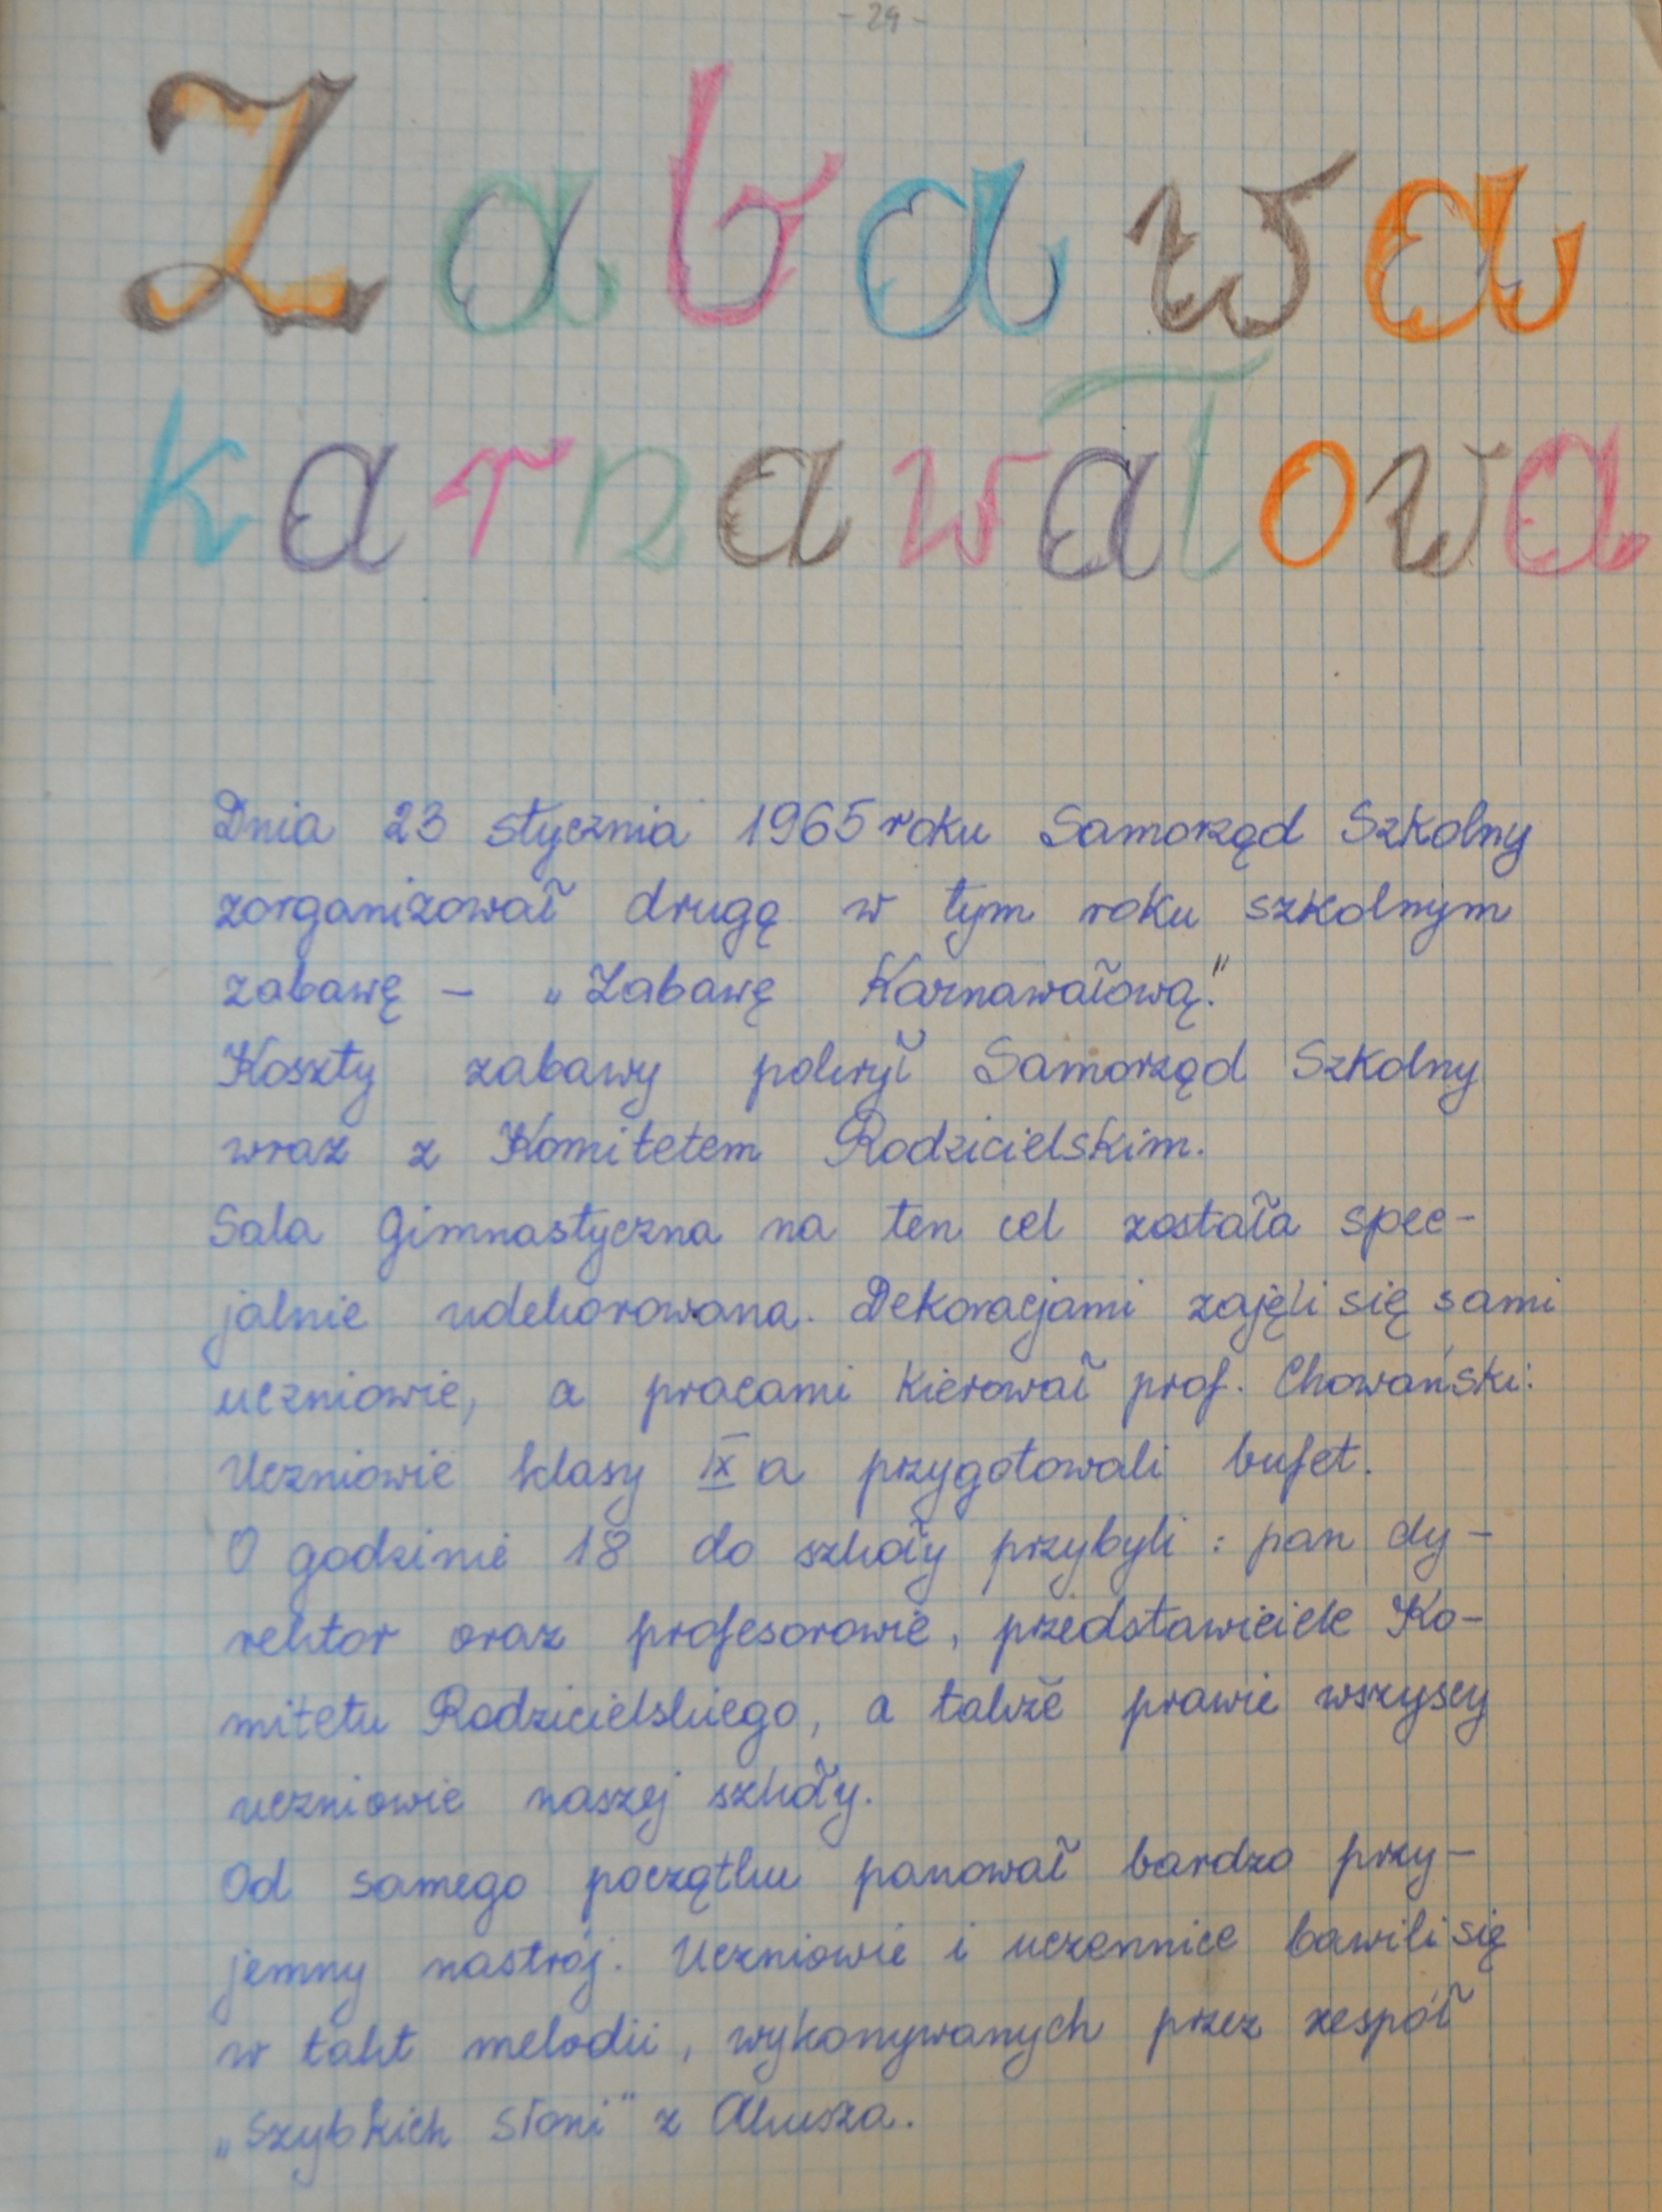 - 29 -
Zabawa
karnawałowa
Dnia 23 stycznia 1965 roku Samorząd Szkolny
zorganizował drugą w tym roku szkolnym
zabawę - „Zabawę Karnawałową."
Koszty zabawy pokrył Samorząd Szkolny
wraz z Komitetem Rodzicielskim.
Sala Gimnastyczna na ten cel została spec-
jalnie udekorowana. Dekoracjami zajęli się sami
uczniowie, a pracami kierował prof. Chowański:
Uczniowie klasy IX a przygotowali bufet.
O godzinie 18 do szkoły przybyli : pan dy-
rektor oraz profesorowie, przedstawiciele Ko-
mitetu Rodzicielskiego, a także prawie wszyscy
uczniowie naszej szkoły.
Od samego początku panował bardzo przy-
jemny nastrój. Uczniowie i uczennice bawili się
w takt melodii, wykonywanych przez zespół
„Szybkich Słoni" z Olkusza.